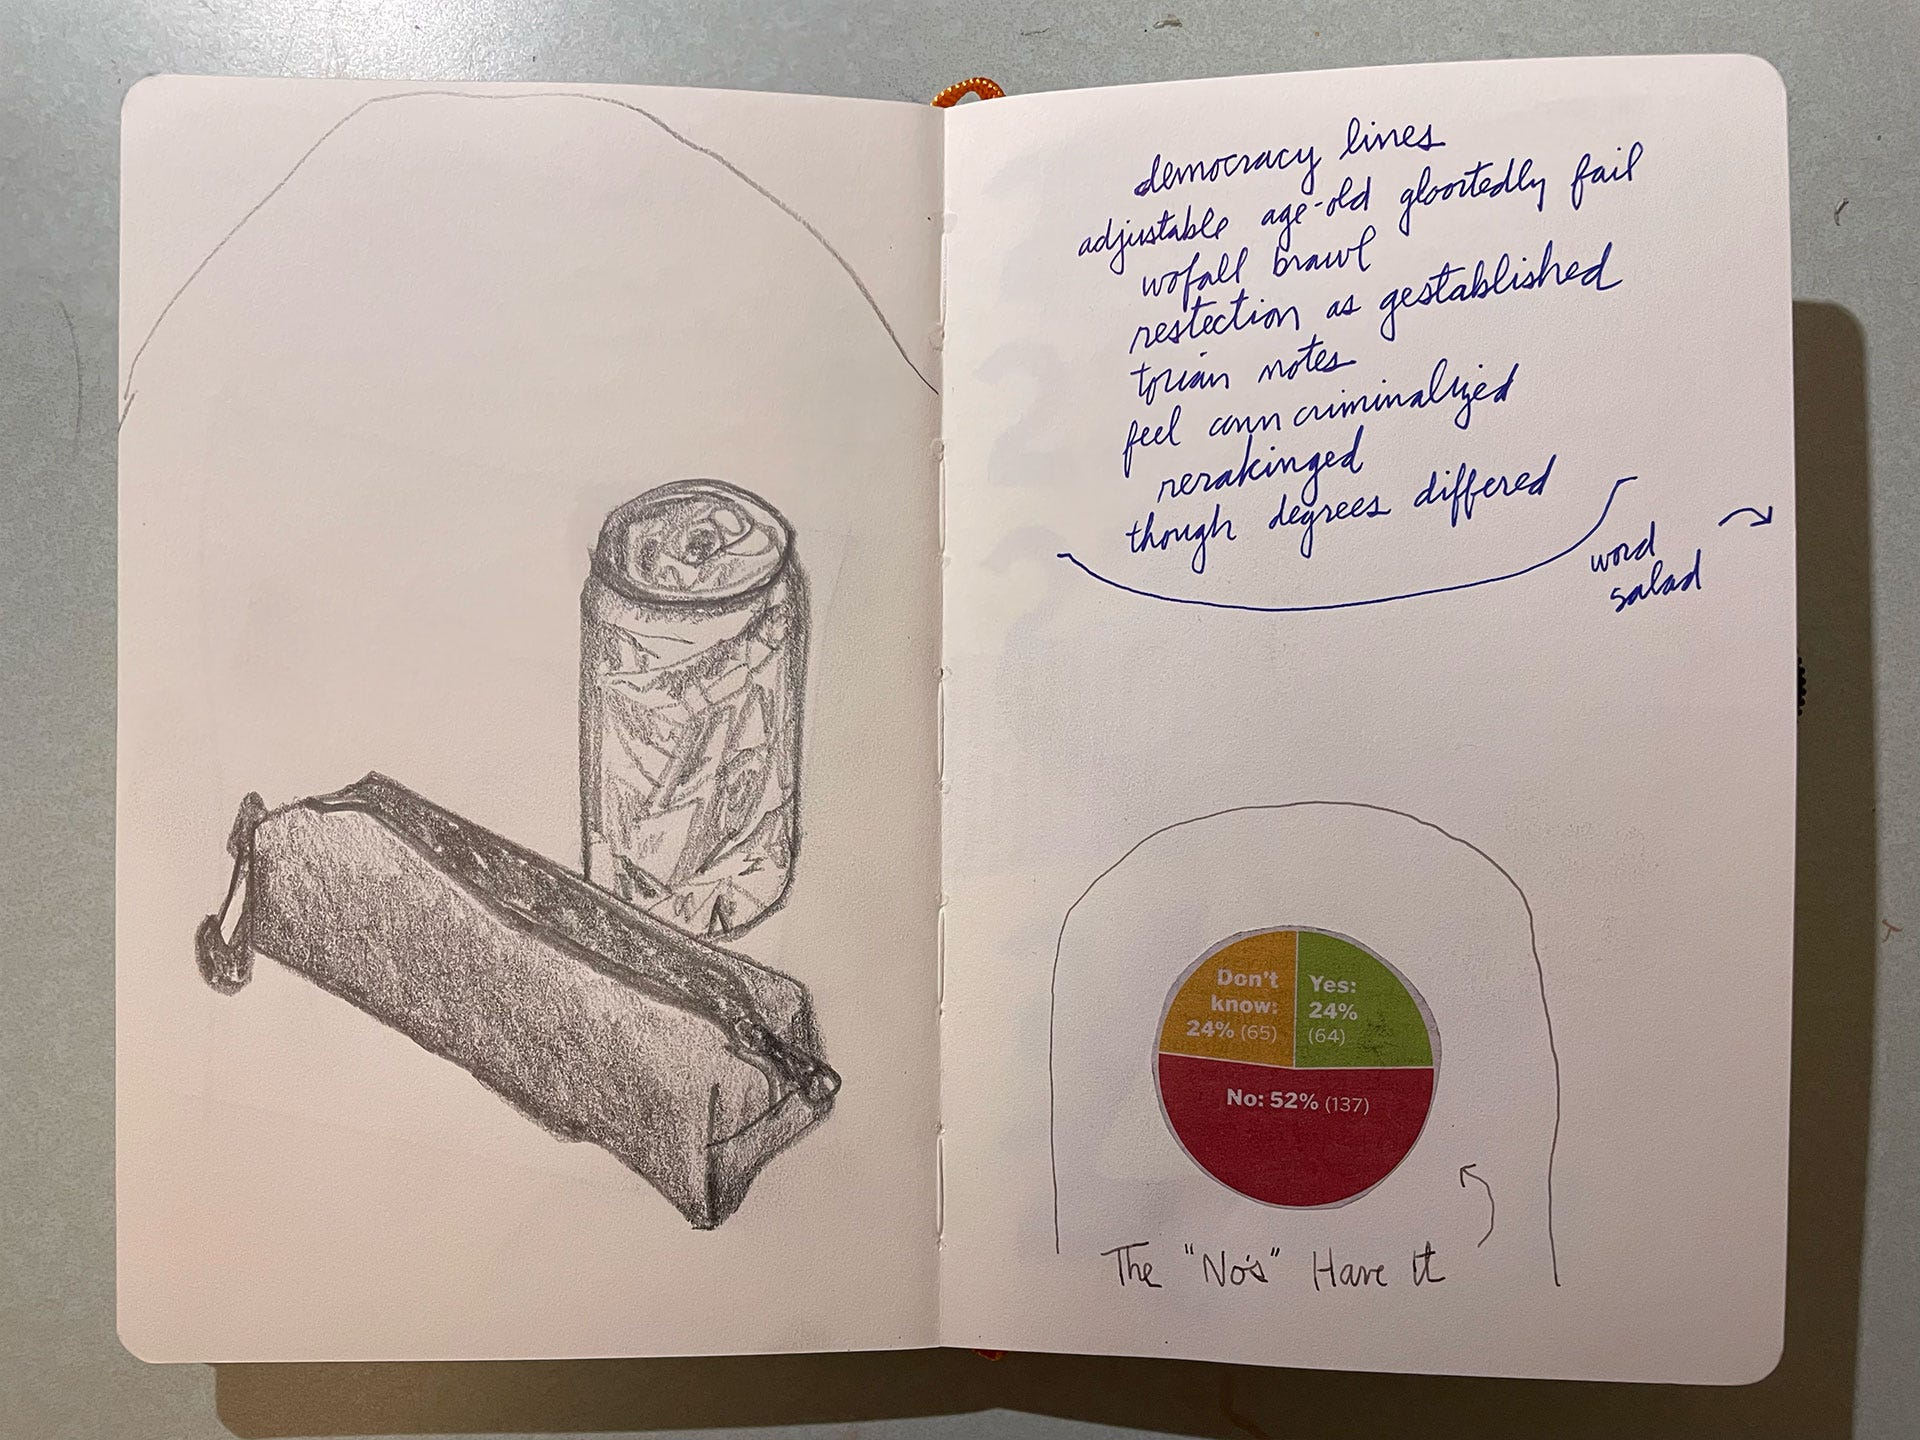 democracy lines
adjustable age-old gloortedly fail
wofall brawl
restection as gestablished
torian notes
feel conn criminalized
rerakinged
though degrees differed
word
salad
Don't
know:
24% (65)
Yes:
24%
(64)
No: 52% (137)
The "No's" Have It